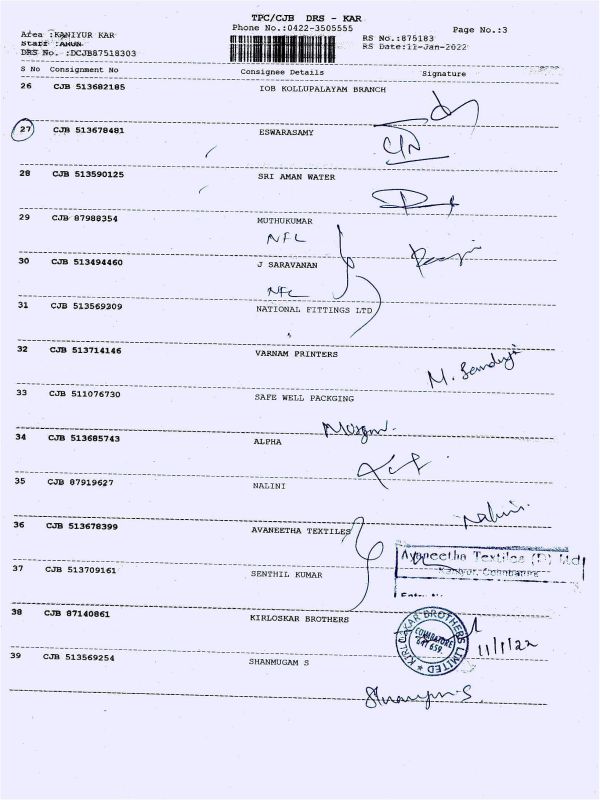 TPC/CJB DRS - KAR
Area :KANIYUR KAR
Phone No.:0422-3505555
Page No.:3
Staff :ARUN
RS No.:875183
DRS No. :DCJB87518303
RS Date:11-Jan-2022
S No Consignment No Consignee Details Signature
26 CJB 513682185 IOB KOLLUPALAYAM BRANCH
27 CJB 513678481 ESWARASAMY
28 CJB 513590125 SRI AMAN WATER
29 CJB 87988354 MUTHUKUMAR
NFL
30 CJB 513494460 J SARAVANAN
NFL
31 CJB 513569309 NATIONAL FITTINGS LTD
32 CJB 513714146 VARNAM PRINTERS
33 CJB 511076730 SAFE WELL PACKGING
34 CJB 513685743 ALPHA
35 CJB 87919627 NALINI
Nalini.
36 CJB 513678399 AVANEETHA TEXTILES
Avaneetha Textiles (P) Ltd
37 CJB 513709161 SENTHIL KUMAR
38 CJB 87140861 KIRLOSKAR BROTHERS
KIRLOSKAR BROTHERS LIMITED
COIMBATORE
641 659.
11/1/22
39 CJB 513569254 SHANMUGAM S